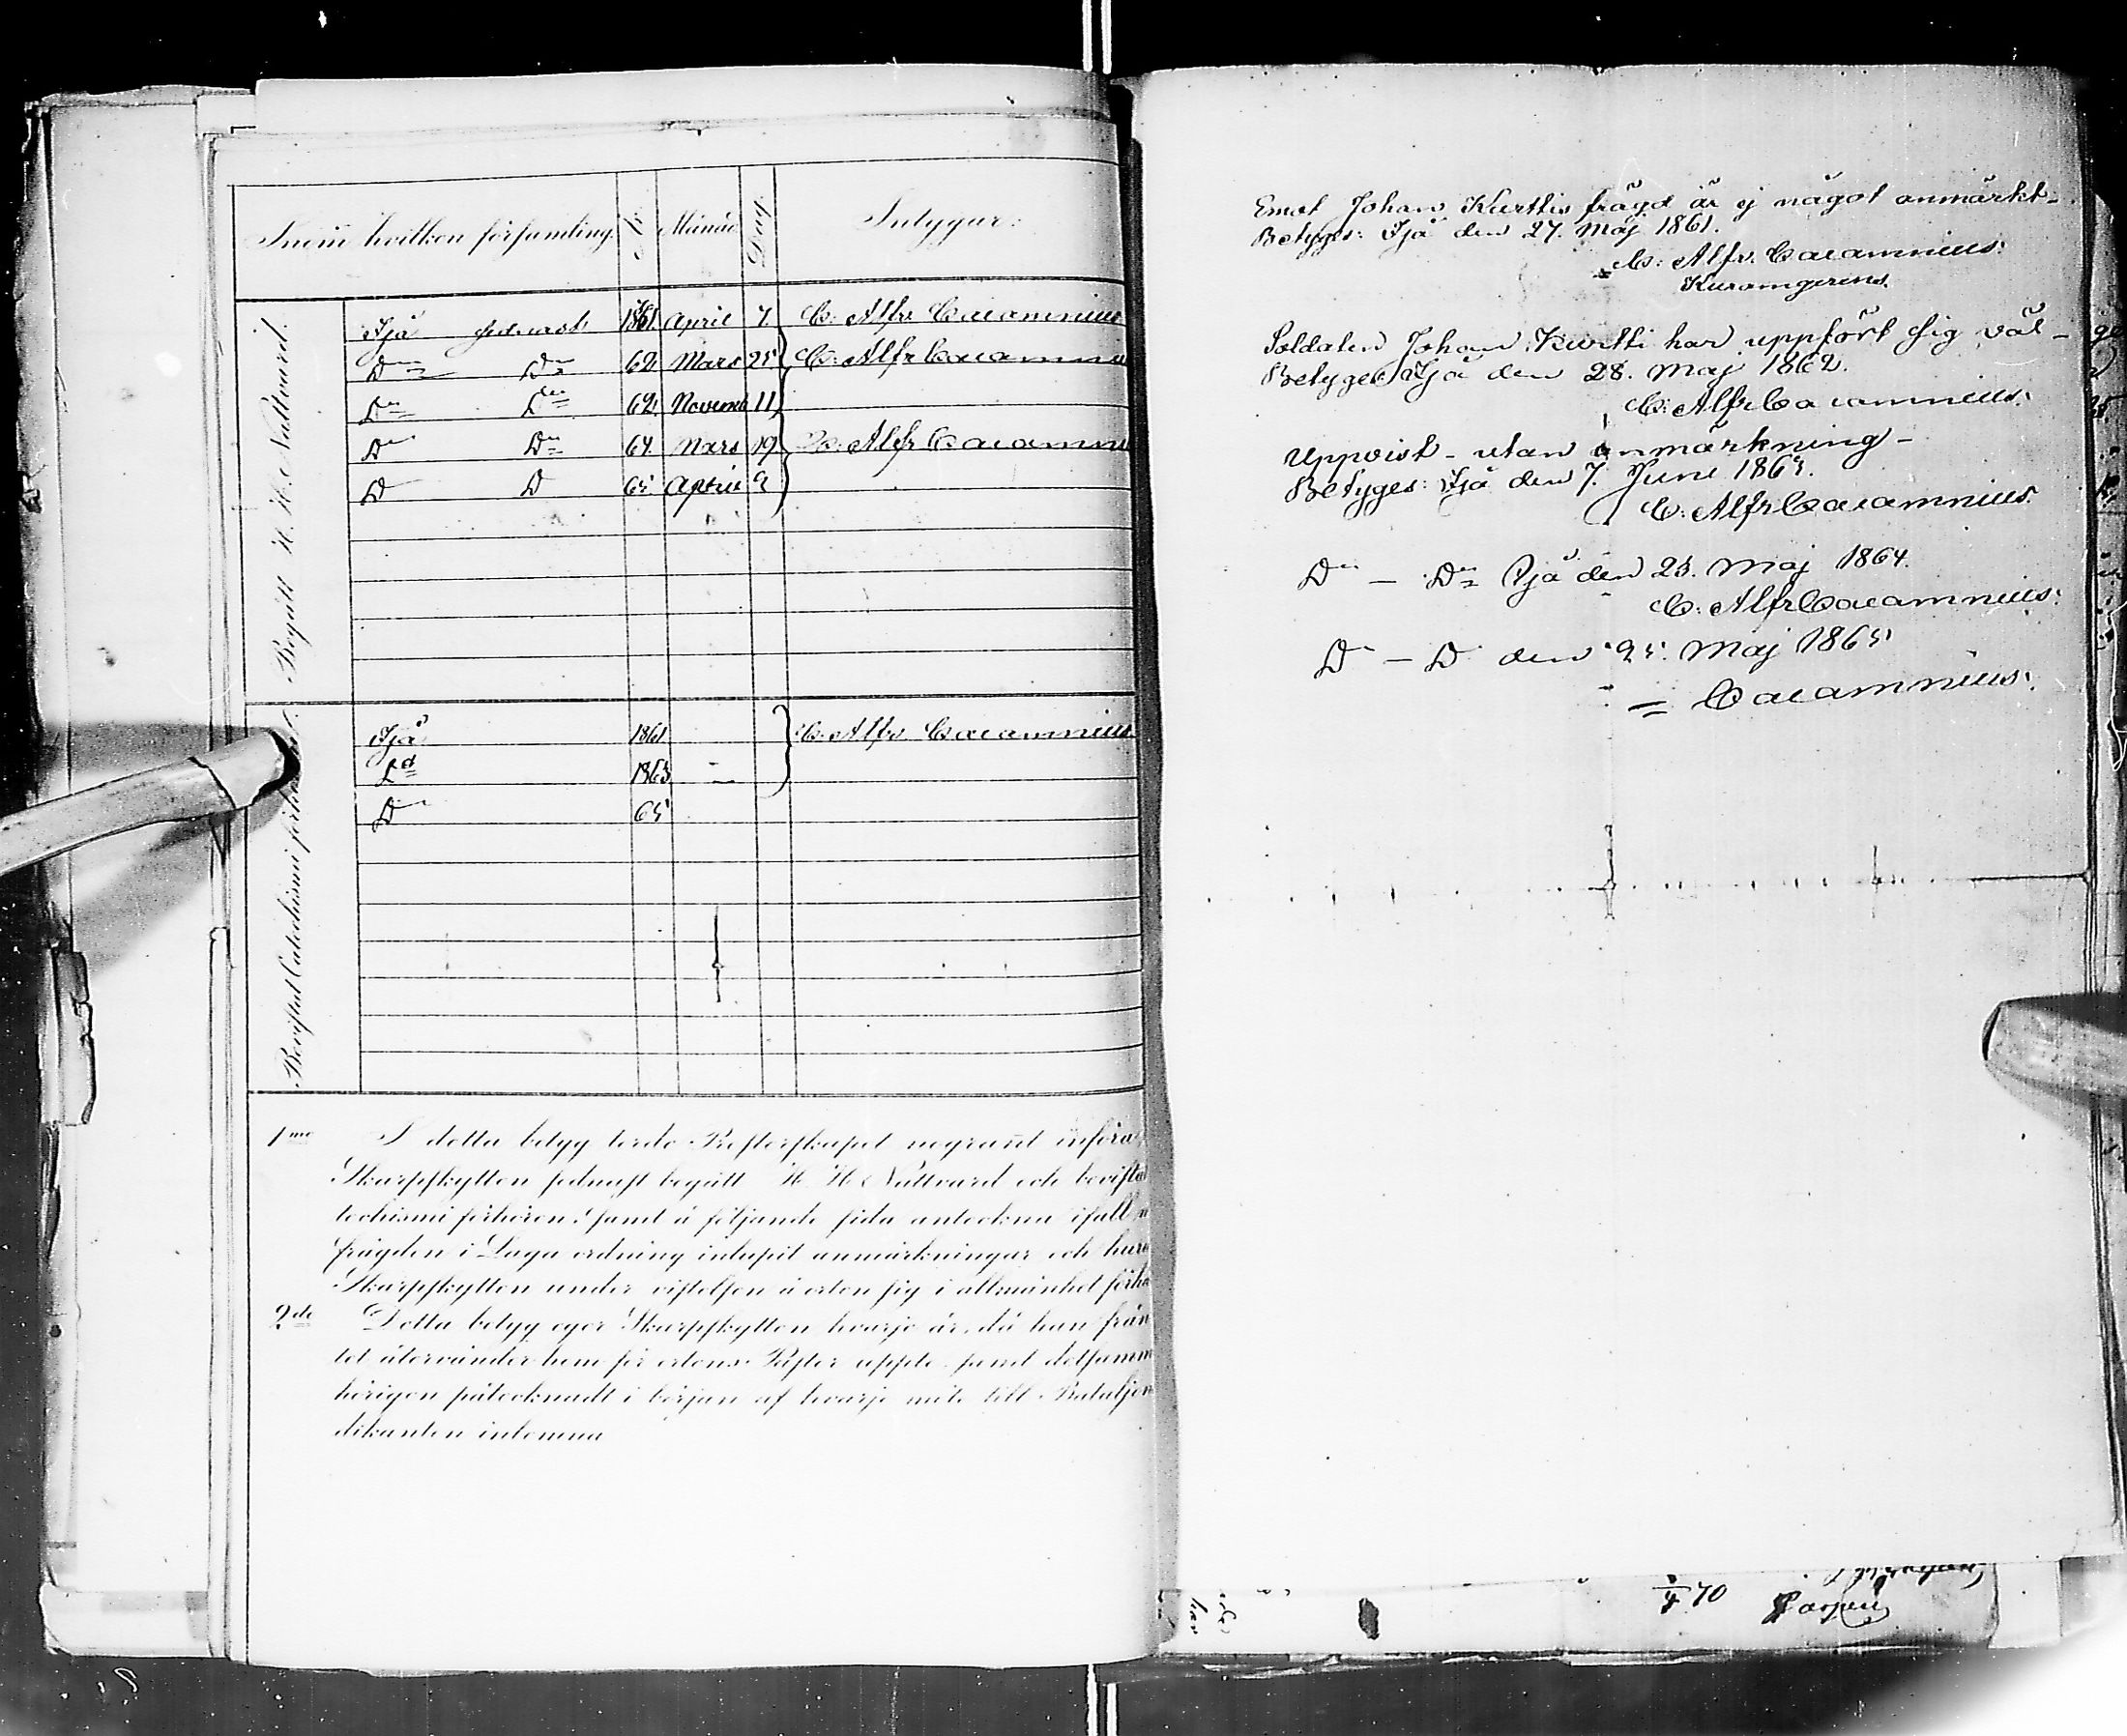 Inom hvilken församling. År. Månad Dag. Intygar:
Begått H. H. Nattvard.
Ijå sednast 1861 April 7. C: Alfr Cacamnius
D:o D:o 62. Mars 25. C: Alfr Cacamnius
D:o D:o 62. Novemb 11
D:o D:o 64. Mars 19. C: Alfr Cacamnius
D D 65 April 9
Bevistat Catechismi förhör.
Ijå 1861 C. Alfr. Cacamnius
D:o 1863 —
D:o 65
1mo I detta betyg torde Presterskapet nogrant införa
Skarpskytten sednast begått H. H. Nattvard och bevistat
techismi förhören, samt å följande sida anteckna ifall
frägden i Laga ordning inlupit anmärkningar och huru
Skarpskytten under vistelsen å orten sig i allmänhet förhå
2do Detta betyg eger Skarpskytten hvarje år, då han från
tet återvänder hem för ortens Pastor uppte, samt detsamm
hörigen påtecknadt i början af hvarje möte till Bataljons
dikanten inlemna
Emot Johan Kurttis frägd är ej något anmärkt-
Betyges: Ijå den 27. Maj 1861.
C: Alfr. Cacamnius.
Kuramgerens.
Soldaten Johan Kurtti har uppfört sig väl -
Betyges Ijå den 28. Maj 1862.
C: Alfr Cacamnius.
Uppvist - utan anmärkning -
Betyges: Ijå den 7. Juni 1863.
C: Alfr Cacamnius.
D:o - D:o Ijå den 23. Maj 1864.
C: Alfr Cacamnius.
D:o - D:o den 25. Maj 1865
= Cacamnius.
70